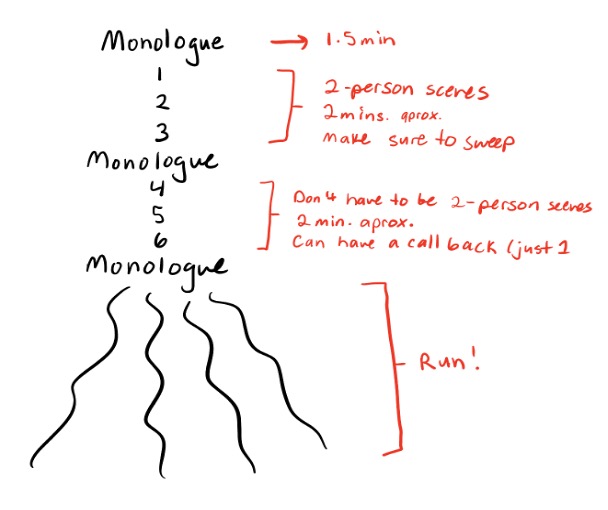 Monologue → 1.5min
1
2
3
2-person scenes
2mins. aprox.
make sure to sweep
Monologue
4
5
6
Don4 have to be 2-person scenes
2 min. aprox.
Can have a call back (just 1
Monologue
Run!